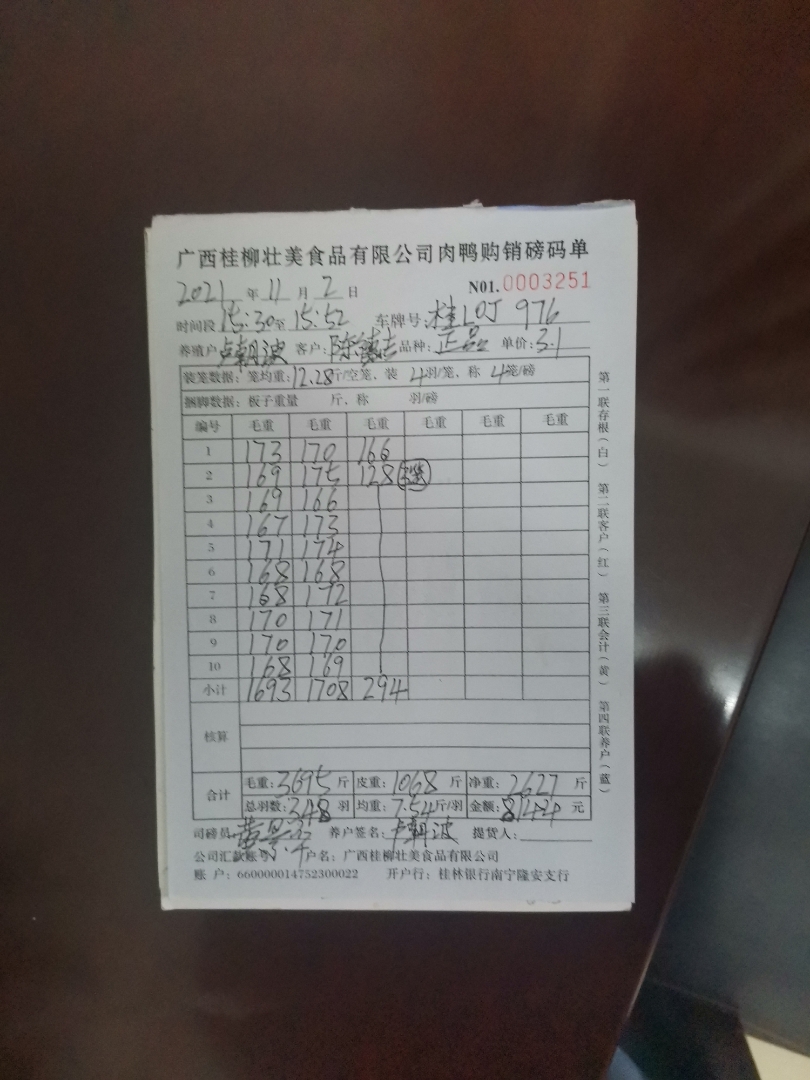 广西桂柳壮美食品有限公司肉鸭购销磅码单
2021 年 11 月 2 日 N01.0003251
时间段 15:30至 15:52 车牌号:桂LOJ 976
养殖户 卢朝波 客户: 陈德吉 品种: 正品 单价:3.1
装笼数据: 笼均重:12.28斤/空笼、装 4羽/笼、称 4笼/磅
捆脚数据: 板子重量 斤、称 羽/磅
编号 毛重 毛重 毛重 毛重 毛重 毛重
1 173 170 166
2 169 175 128
3 169 166
4 167 173
5 171 174
6 168 168
7 168 172
8 170 171
9 170 170
10 168 169
小计 1693 1708 294
核算
合计 毛重:3695 斤 皮重:1068 斤 净重:2627 斤
总羽数:348 羽 均重:7.54斤/羽 金额:8144 元
司磅员 黄 养户签名:卢朝波 提货人:
公司汇款账号 户名:广西桂柳壮美食品有限公司
账 户:660000014752300022 开户行:桂林银行南宁隆安支行
第一联存根(白) 第二联客户(红) 第三联会计(黄) 第四联养户(蓝)